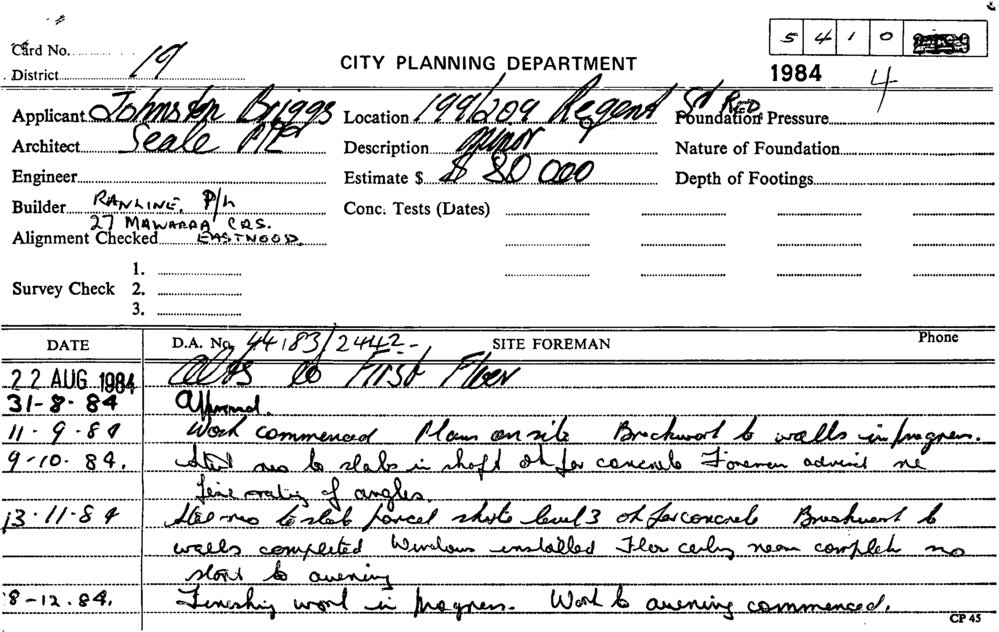 Card No.
5 4 1 0
District 19
CITY PLANNING DEPARTMENT
1984 4
Applicant Johnston Briggs Location 199/209 Regent St RED Foundation Pressure
Architect Seale P/L Description Minor Nature of Foundation
Engineer Estimate $ $ 80 000 Depth of Footings
Builder RANLINE. P/L Conc. Tests (Dates)
27 MAWARRA CRS.
Alignment Checked EASTWOOD.
1.
Survey Check 2.
3.
DATE D.A. No. 44183/2442 - SITE FOREMAN Phone
22 AUG 1984 Alts to First Floor
31-8-84 Approved.
11-9-84 Work commenced Plans on site Brickwork to walls in progress.
9-10-84. Steel reo to slabs in shaft ok for concrete Foreman advised re
fire rating of angles.
13-11-84 Steel reo to slab level 3 ok for concrete Brickwork to
walls completed Windows installed Floor ceiling near complete no
start to awning
8-12-84. Finishing work in progress. Work to awning commenced.
CP 45